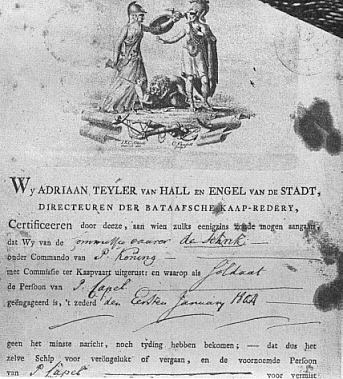 Wy ADRIAAN TEYLER VAN HALL EN ENGEL VAN DE STADT,
DIRECTEUREN DER BATAAFSCHE KAAP-REDERY,
Certificeeren door deeze, aan wien zulks eenigzins zoude mogen aangaan,
dat Wy van de de Schrik
onder Commando van P. Koning
met Commissie ter Kaapvaart uitgerust: en waarop als Soldaat
de Persoon van P. Capel
geëngageerd is, 't zederd den Eersten January
geen het minste naricht, noch tyding hebben bekomen; — dat dus het
zelve Schip voor verongelukt of vergaan, en de voornoemde Persoon
van P. Capel voor vermist